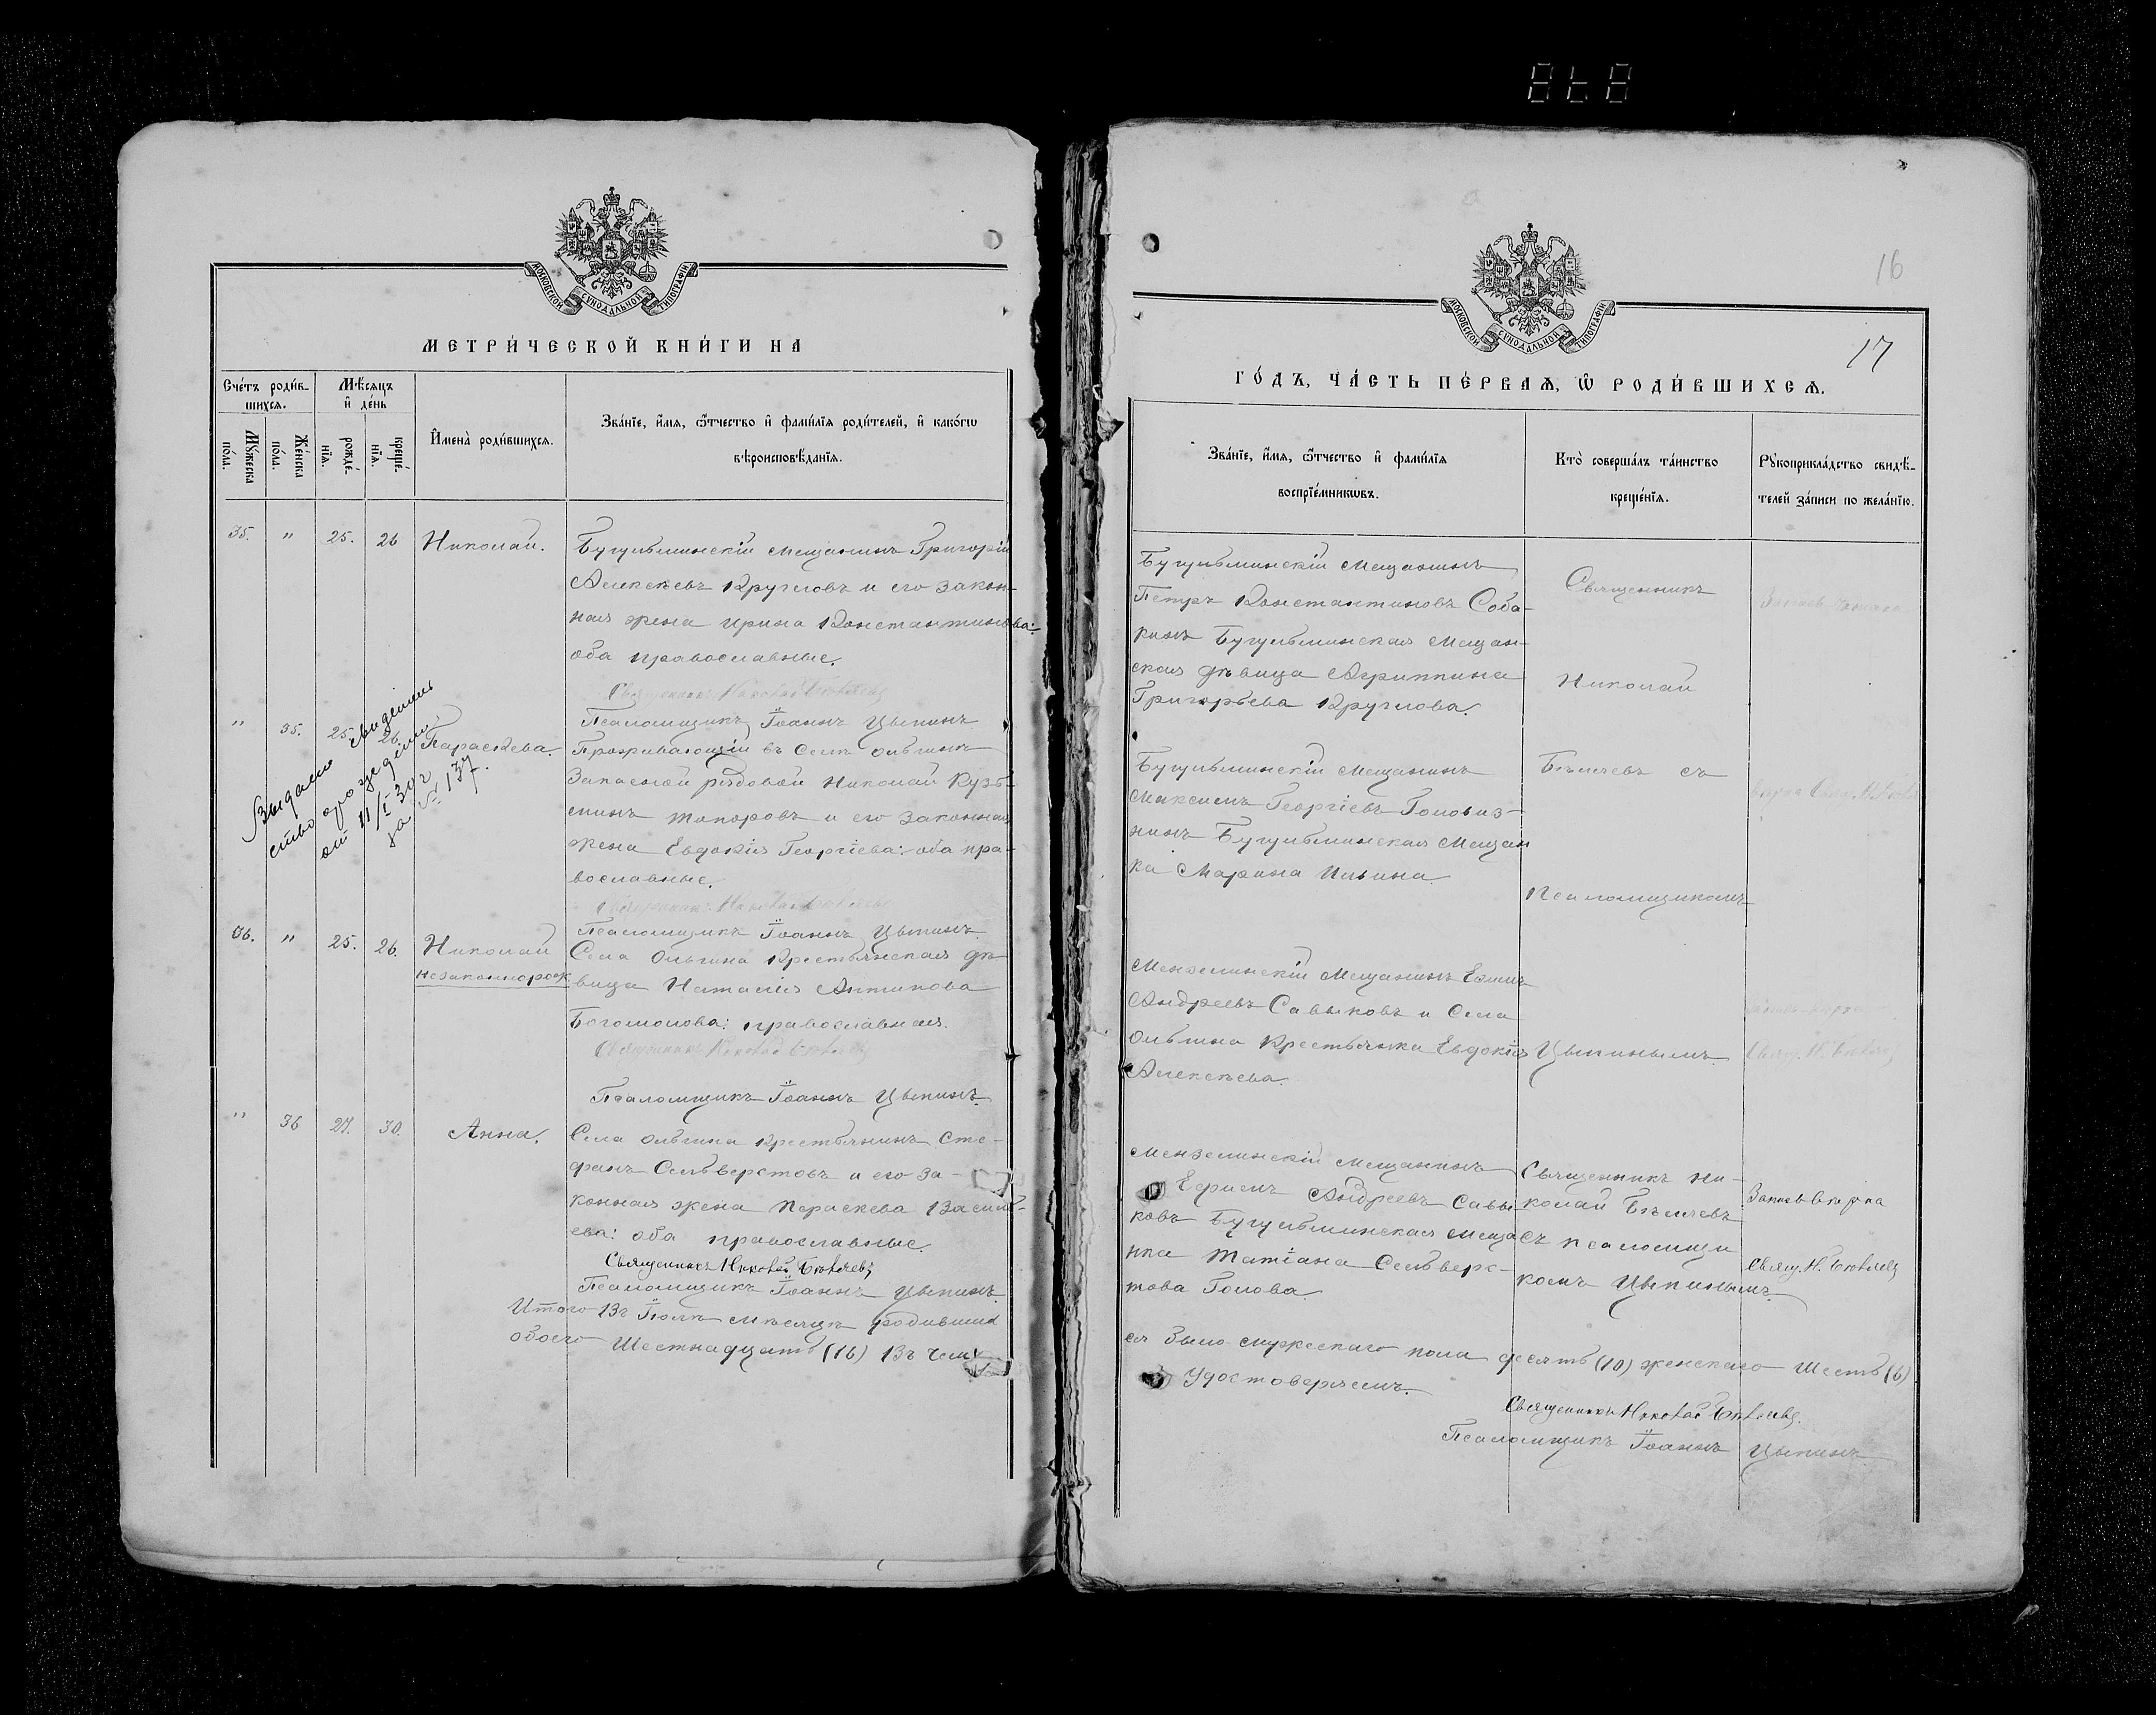 МОСКОВСКОЙ СУНОДАЛЬНОЙ ТИПОГРАФІИ
МЕТРИ́ЧЕСКОЙ КНИ́ГИ НА
Сче́тъ роди́в-
шихся.
Мѣ́сяцъ
и҆ де́нь
Мꙋ́жеска
по́ла.
Же́нска
по́ла.
рожде́-
нїя.
креще́-
нїя.
И҆мена̀ роди́вшихся.
Зва́нїе, и҆́мя, ѻ҆́тчество и҆ фами́лїя роди́телей, и҆ како́гѡ
вѣроисповѣ́данїя.
35. " 25. 26 Николай. Бугульминскій мещанинъ Григорій
Алексѣевъ Кругловъ и его закон-
ная жена Ирина Константинова:
оба православные.
Священникъ Николай Бѣляевъ
Псаломщикъ Іоаннъ Цыпинъ.
" 35. 25. 26. Параскева. Проживающій въ Селѣ Ольгинѣ
Запасной рядовой Николай Кузь-
минъ Топоровъ и его законная
жена Евдокія Георгіева: оба пра-
вославные.
Выдано свидѣтель
ство о рожденіи
от 11/I 30 г
за № 137.
Священникъ Николай Бѣляевъ
Псаломщикъ Іоаннъ Цыпинъ.
36. " 25. 26. Николай Села Ольгина Крестьянская дѣ-
незаконнорож вица Наталія Антипова
Богомолова: православная.
Священникъ Николай Бѣляевъ
Псаломщикъ Іоаннъ Цыпинъ.
" 36 27. 30. Анна. Села Ольгина Крестьянинъ Сте-
фанъ Сельверстовъ и его за-
конная жена Параскева Василь-
ева: оба православные.
Священникъ Николай Бѣляевъ
Псаломщикъ Іоаннъ Цыпинъ.
Итого Въ Іюлѣ мѣсяцѣ родивших
обоего Шестнадцать (16) Въ чем
16
17
МОСКОВСКОЙ СУНОДАЛЬНОЙ ТИПОГРАФІИ
ГО́ДЪ, ЧА́СТЬ ПЕ́РВАѦ, Ѡ҆ РОДИ́ВШИХСѦ.
Зва́нїе, и҆́мя, ѻ҆́тчество и҆ фами́лїя
воспрїе́мникѡвъ.
Кто̀ соверша́лъ та́инство
креще́нїя.
Рꙋкоприкла́дство свидѣ́-
телей за́писи по жела́нїю.
Бугульминскій мещанинъ
Петръ Константиновъ Соба-
кинъ Бугульминская мещан-
ская дѣвица Агриппина
Григорьева Круглова.
Священникъ
Николай
Бугульминскій мещанинъ
Максимъ Георгіевъ Головиз-
нинъ Бугульминская мещан
ка Марина Ильина
Бѣляевъ съ
Псаломщикомъ
Мензелинскій мещанинъ Ефимъ
Андреевъ Савыковъ и Села
Ольгина Крестьянка Евдокія
Алексѣева.
Цыпинымъ.
Мензелинскій мещанинъ
Ефимъ Андреевъ Савы
ковъ Бугульминская меща
нка Татіана Сельверс-
това Голова.
Священникъ Ни-
колай Бѣляевъ
съ псаломщи
комъ Цыпинымъ.
Запись вѣрна
Свящ. Н. Бѣляевъ
ся было мужескаго пола десять (10) женскаго Шесть (6)
Удостовѣряемъ.
Священникъ Николай Бѣляевъ.
Псаломщикъ Іоаннъ Цыпинъ.